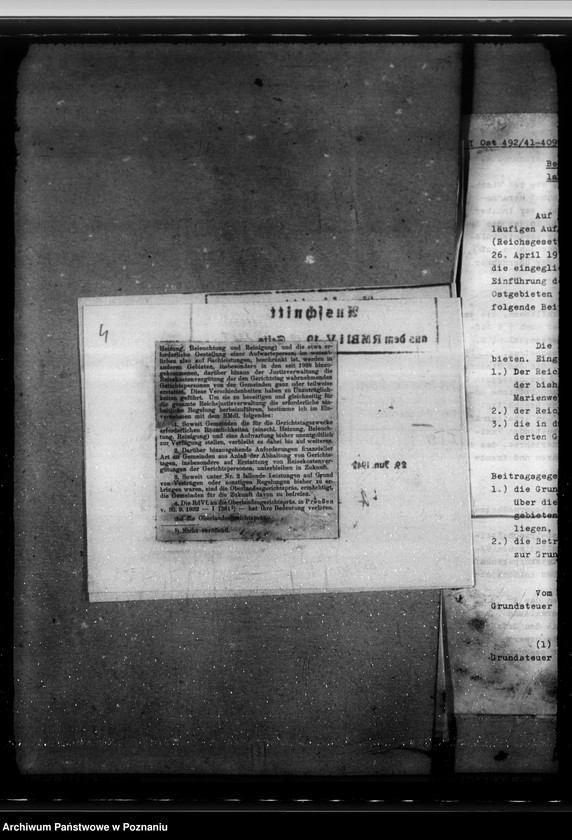 4
Ausschnitt
aus dem RMBliV. 19 Seite
Heizung, Beleuchtung und Reinigung) und die etwa er-
forderliche Gestellung einer Aufwarteperson, im wesent-
lichen also auf Sachleistungen, beschränkt ist, wurden in
anderen Gebieten, insbesondere in den seit 1938 hinzu-
gekommenen, darüber hinaus der Justizverwaltung die
Reisekostenvergütung der den Gerichtstag wahrnehmenden
Gerichtspersonen von der Gemeinden ganz oder teilweise
erstattet. Diese Verschiedenheiten haben zu Unzuträglich-
keiten geführt. Um sie zu beseitigen und gleichzeitig für
die gesamte Reichsjustizverwaltung die erforderliche ein-
heitliche Regelung herbeizuführen, bestimme ich im Ein-
vernehmen mit dem RMdI. folgendes:
1. Soweit Gemeinden die für die Gerichtstagszwecke
erforderlichen Räumlichkeiten (einschl. Heizung, Beleuch-
tung, Reinigung) und eine Aufwartung bisher unentgeltlich
zur Verfügung stellen, verbleibt es dabei bis auf weiteres.
2. Darüber hinausgehende Anforderungen finanzieller
Art an Gemeinden aus Anlaß der Abhaltung von Gerichts-
tagen, insbesondere auf Erstattung von Reisekostenver-
gütungen der Gerichtspersonen, unterbleiben in Zukunft.
3. Soweit unter Nr. 2 fallende Leistungen auf Grund
von Verträgen oder sonstigen Regelungen bisher zu er-
bringen waren, sind die Oberlandesgerichtspräs. ermächtigt,
die Gemeinden für die Zukunft davon zu befreien.
4. Die RdVf. an die Oberlandesgerichtspräs. in Preußen
v. 30. 9. 1932 — I 1261¹) — hat ihre Bedeutung verloren.
An die Oberlandesgerichtspräs.
¹) Nicht veröffentl.
29. Jun. 1942
I Ost 492/41-409
Be
la
Auf
läufigen Auf
(Reichsgeset
26. April 19
die eingegli
Einführung de
Ostgebieten
folgende Bei
Die
bieten. Eing
1.) Der Reic
der bish
Marienwe
2.) der Reic
3.) die in d
derten G
Beitragsgege
1.) die Grun
über die
gebieten
liegen,
2.) die Betr
zur Grun
Vom
Grundsteuer
(1)
Grundsteuer
Archiwum Państwowe w Poznaniu